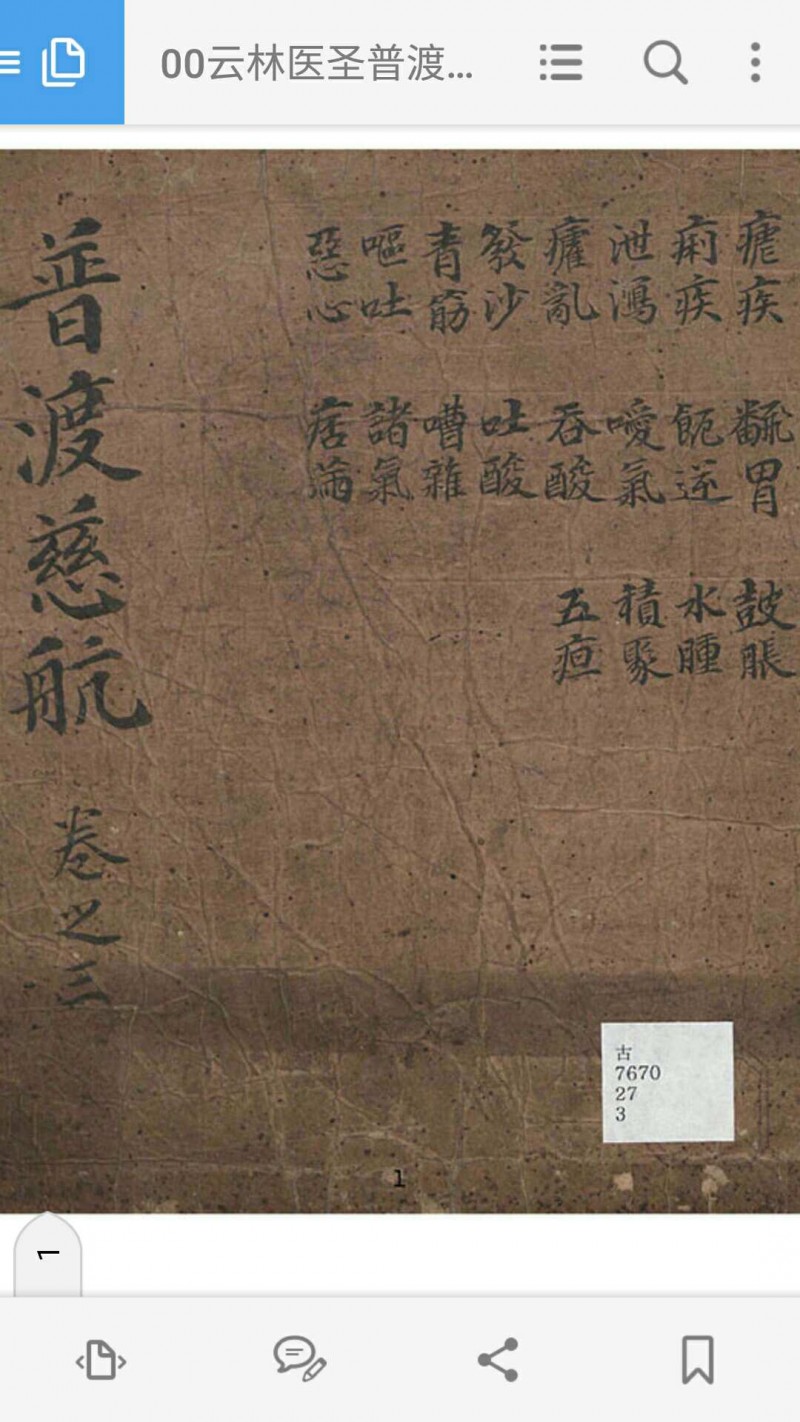 00云林医圣普渡...
瘧疾
痢疾
泄瀉
癨亂
發沙
青筋
嘔吐
惡心
翻胃
呃逆
噯氣
吞酸
吐酸
嘈雜
諸氣
痞滿
鼓脹
水腫
積聚
五疸
普渡慈航 卷之三
古
7670
27
3
1
1